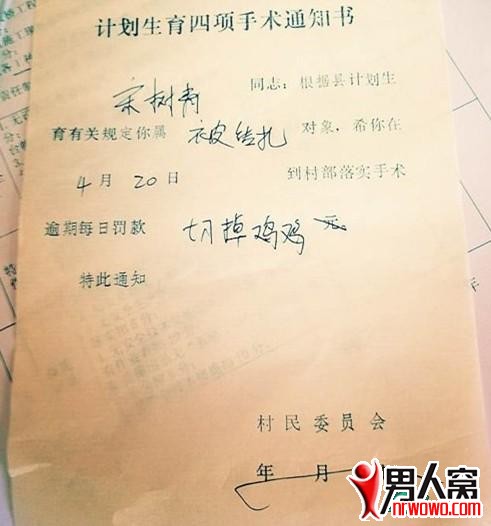 计划生育四项手术通知书
宋树青 同志：根据县计划生
育有关规定你属 被结扎 对象，希你在
4 月 20 日 到村部落实手术
逾期每日罚款 切掉鸡鸡 元
特此通知
村民委员会
年 月
男人窝
nrwowo.com